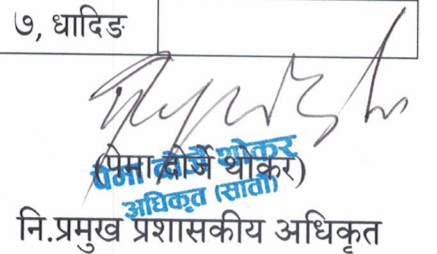 ७, धादिङ
पेमा दोर्जे थोकर
(पेमा दोर्जे थोकर)
अधिकृत (सातौं)
नि.प्रमुख प्रशासकीय अधिकृत